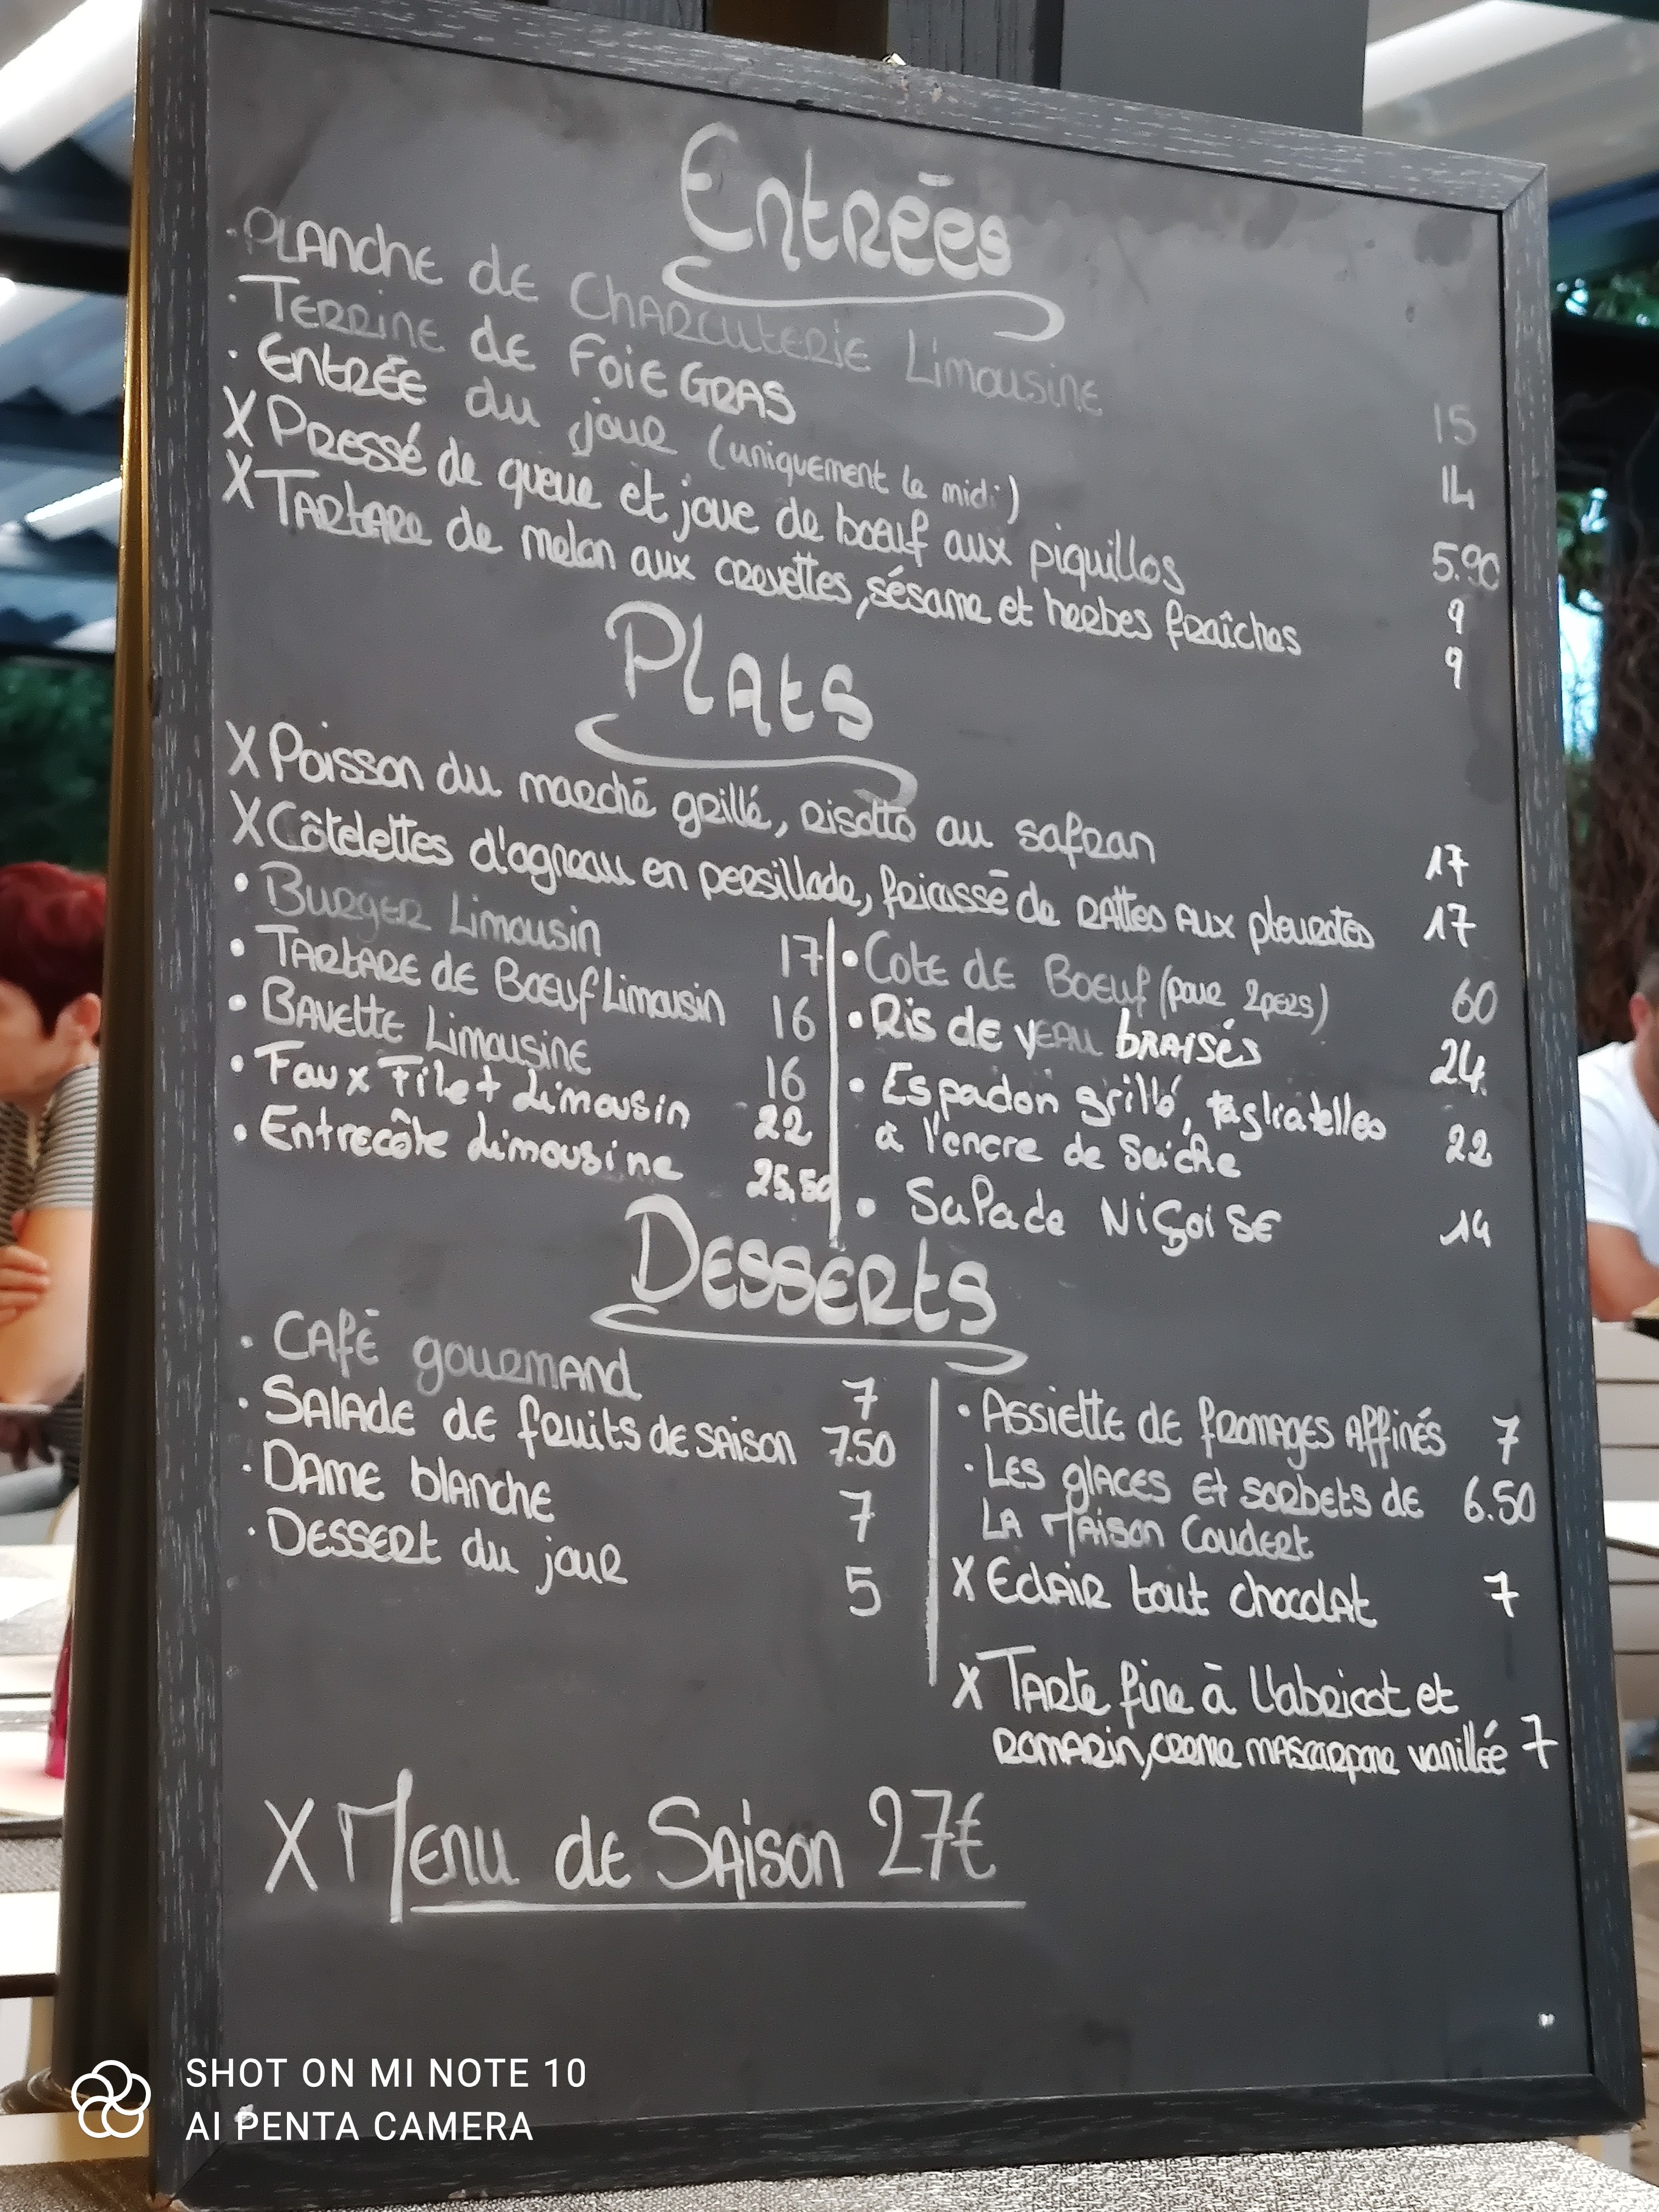 Entrées
· Planche de Charcuterie Limousine 15
· Terrine de Foie Gras 14
· Entrée du jour (uniquement le midi) 5.90
X Pressé de queue et joue de bœuf aux piquillos 9
X Tartare de melon aux crevettes, sésame et herbes fraîches 9
Plats
X Poisson du marché grillé, risotto au safran 17
X Côtelettes d'agneau en persillade, fricassé de rattes aux pleurotes 17
· Burger Limousin 17
· Tartare de Bœuf Limousin 16
· Bavette Limousine 16
· Faux Filet Limousin 22
· Entrecôte Limousine 25,50
· Cote de Boeuf (pour 2pers) 60
· Ris de veau braisés 24
· Espadon grillé, tagliatelles
à l'encre de Seiche 22
· Salade Niçoise 14
Desserts
· Café gourmand 7
· Salade de fruits de saison 7.50
· Dame blanche 7
· Dessert du jour 5
· Assiette de fromages affinés 7
· Les glaces et sorbets de 6.50
la Maison Coudert
X Eclair tout chocolat 7
X Tarte fine à l'abricot et
romarin, creme mascarpone vanillée 7
X Menu de Saison 27€
SHOT ON MI NOTE 10
AI PENTA CAMERA